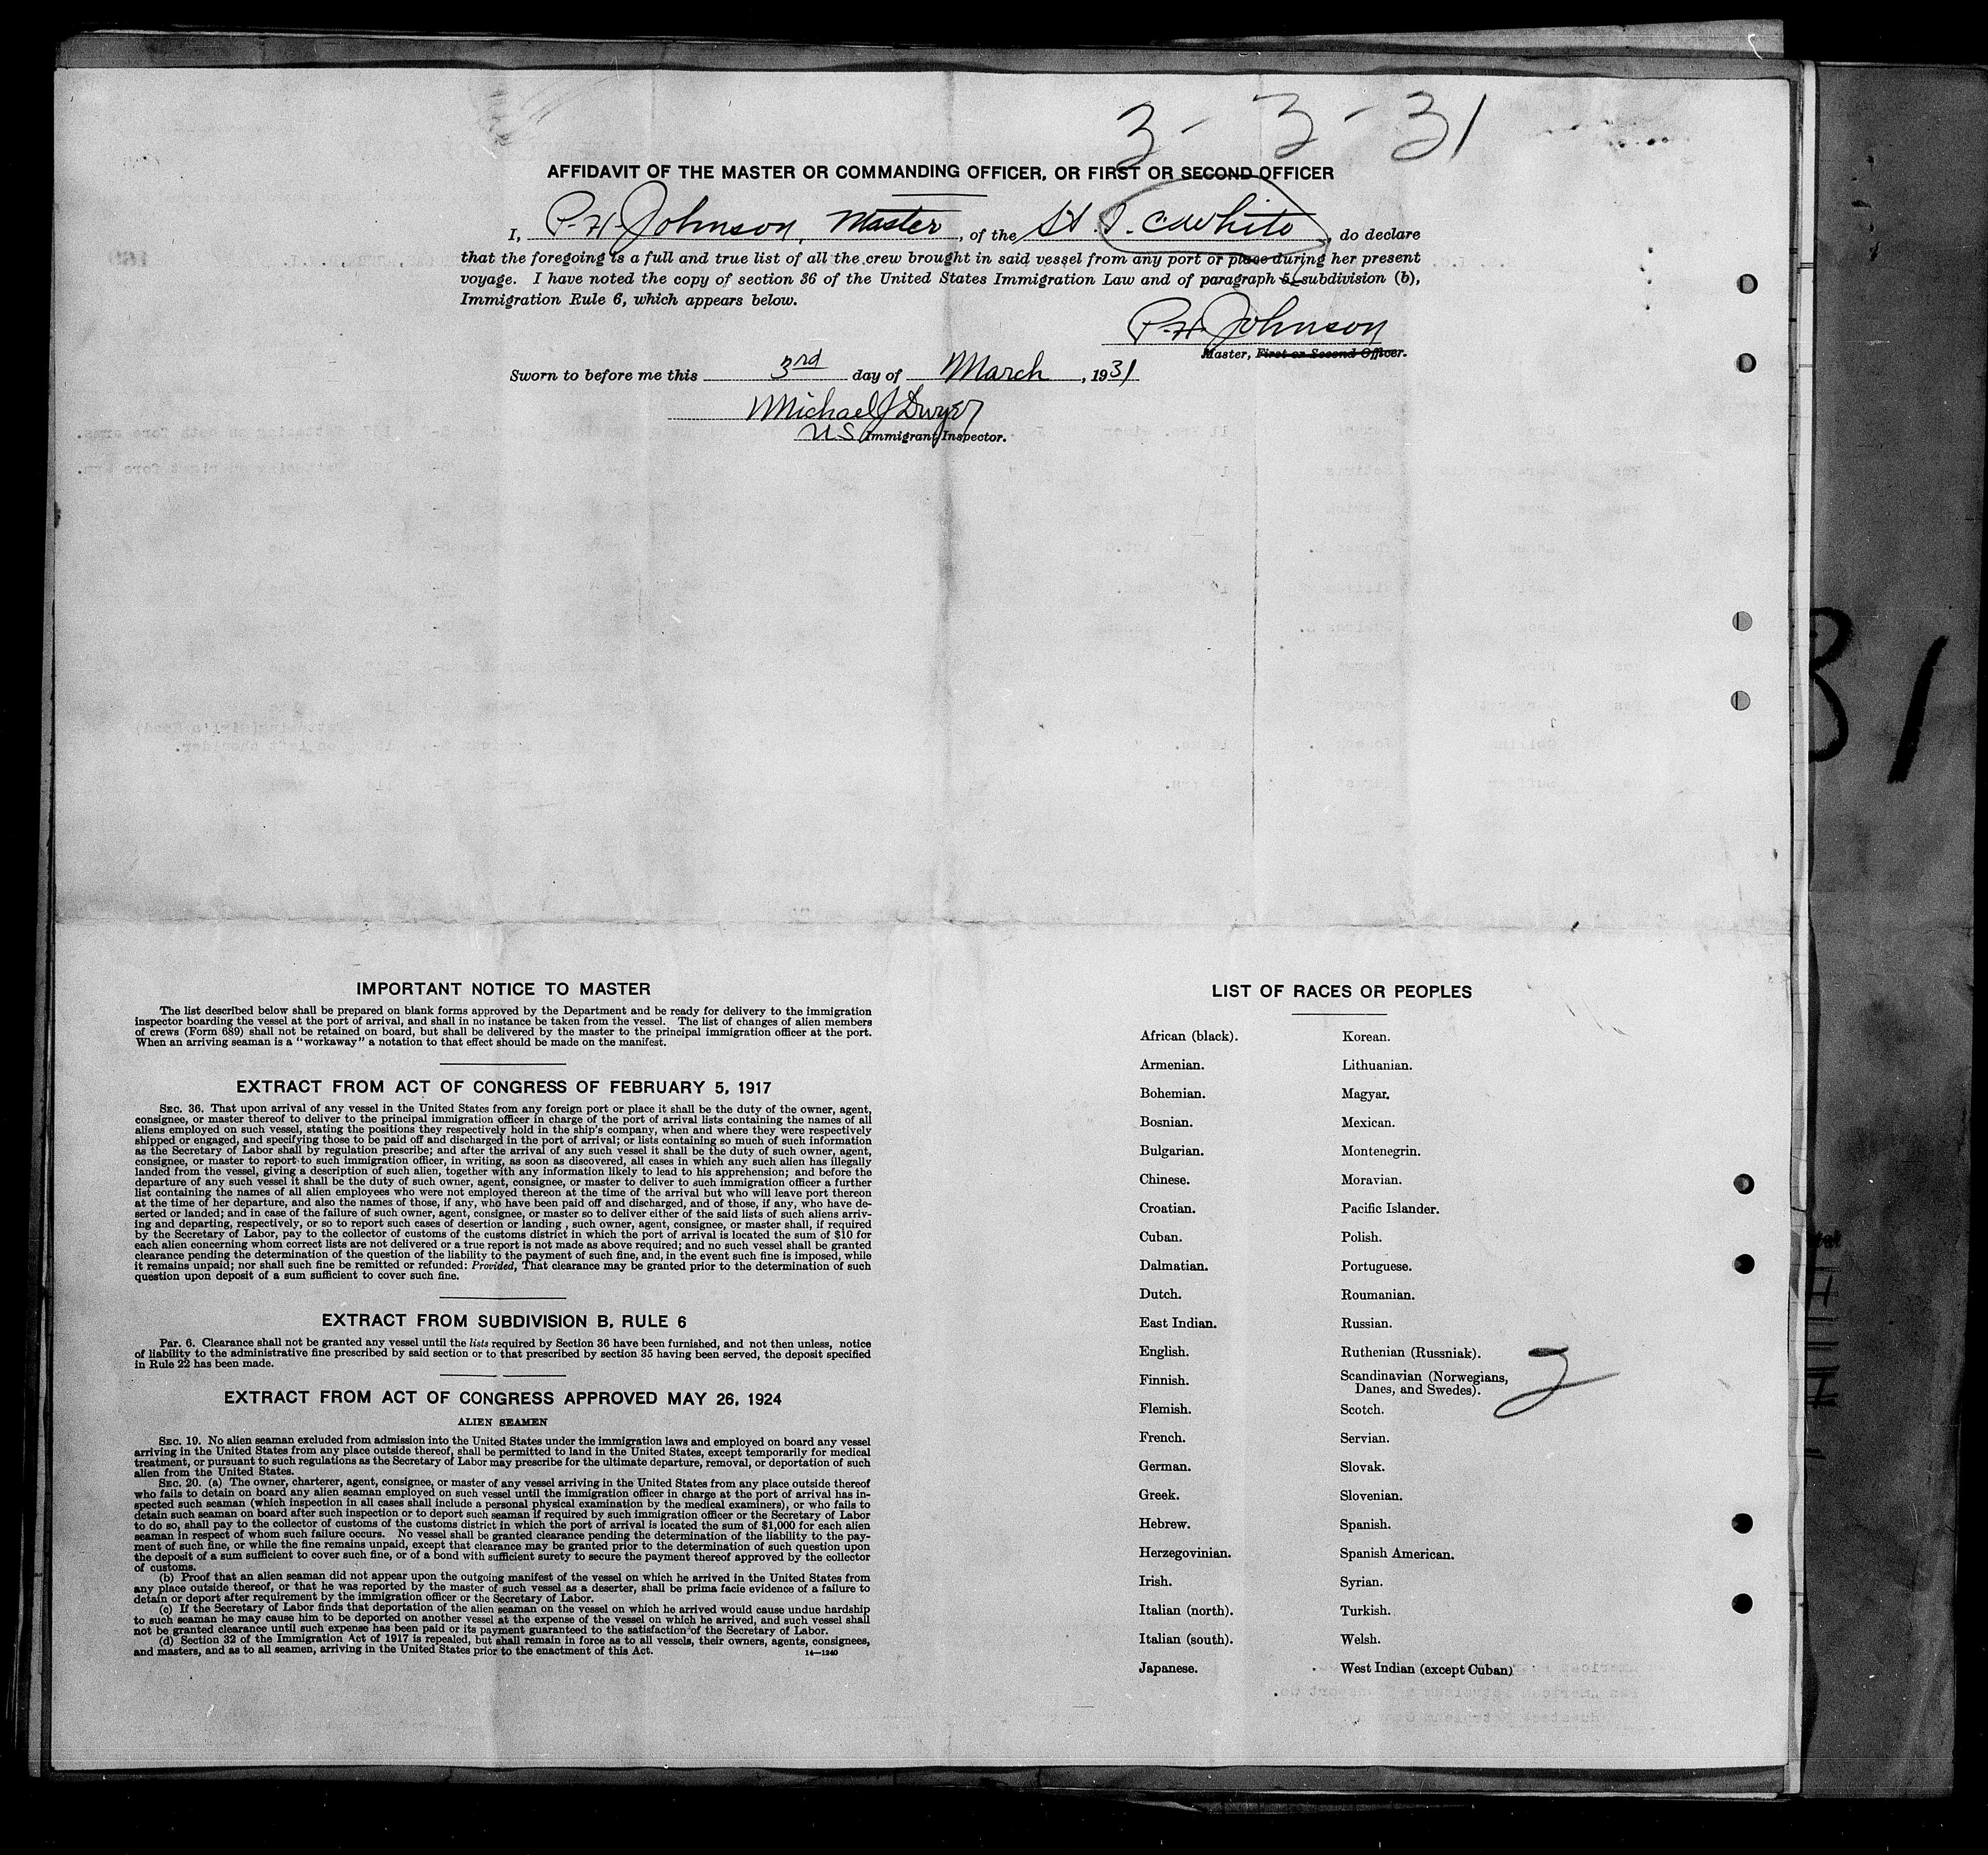 3-3-31
AFFIDAVIT OF THE MASTER OR COMMANDING OFFICER, OR FIRST OR SECOND OFFICER
I, P. H. Johnson, Master, of the I. C. White, do declare
that the foregoing is a full and true list of all the crew brought in said vessel from any port or place during her present
voyage. I have noted the copy of section 36 of the United States Immigration Law and of paragraph 5, subdivision (b),
Immigration Rule 6, which appears below.
P. H. Johnson
Master, First or Second Officer.
Sworn to before me this 3rd day of March, 1931
Michael J Dwyer
US Immigrant Inspector.
31
IMPORTANT NOTICE TO MASTER
The list described below shall be prepared on blank forms approved by the Department and be ready for delivery to the immigration
inspector boarding the vessel at the port of arrival, and shall in no instance be taken from the vessel. The list of changes of alien members
of crews (Form 689) shall not be retained on board, but shall be delivered by the master to the principal immigration officer at the port.
When an arriving seaman is a "workaway" a notation to that effect should be made on the manifest.
EXTRACT FROM ACT OF CONGRESS OF FEBRUARY 5, 1917
SEC. 36. That upon arrival of any vessel in the United States from any foreign port or place it shall be the duty of the owner, agent,
consignee, or master thereof to deliver to the principal immigration officer in charge of the port of arrival lists containing the names of all
aliens employed on such vessel, stating the positions they respectively hold in the ship's company, when and where they were respectively
shipped or engaged, and specifying those to be paid off and discharged in the port of arrival; or lists containing so much of such information
as the Secretary of Labor shall by regulation prescribe; and after the arrival of any such vessel it shall be the duty of such owner, agent,
consignee, or master to report to such immigration officer, in writing, as soon as discovered, all cases in which any such alien has illegally
landed from the vessel, giving a description of such alien, together with any information likely to lead to his apprehension; and before the
departure of any such vessel it shall be the duty of such owner, agent, consignee, or master to deliver to such immigration officer a further
list containing the names of all alien employees who were not employed thereon at the time of the arrival but who will leave port thereon
at the time of her departure, and also the names of those, if any, who have been paid off and discharged, and of those, if any, who have de-
serted or landed; and in case of the failure of such owner, agent, consignee, or master so to deliver either of the said lists of such aliens arriv-
ing and departing, respectively, or so to report such cases of desertion or landing , such owner, agent, consignee, or master shall, if required
by the Secretary of Labor, pay to the collector of customs of the customs district in which the port of arrival is located the sum of $10 for
each alien concerning whom correct lists are not delivered or a true report is not made as above required; and no such vessel shall be granted
clearance pending the determination of the question of the liability to the payment of such fine, and, in the event such fine is imposed, while
it remains unpaid; nor shall such fine be remitted or refunded: Provided, That clearance may be granted prior to the determination of such
question upon deposit of a sum sufficient to cover such fine.
EXTRACT FROM SUBDIVISION B, RULE 6
PAR. 6. Clearance shall not be granted any vessel until the lists required by Section 36 have been furnished, and not then unless, notice
of liability to the administrative fine prescribed by said section or to that prescribed by section 35 having been served, the deposit specified
in Rule 22 has been made.
EXTRACT FROM ACT OF CONGRESS APPROVED MAY 26, 1924
ALIEN SEAMEN
SEC. 19. No alien seaman excluded from admission into the United States under the immigration laws and employed on board any vessel
arriving in the United States from any place outside thereof, shall be permitted to land in the United States, except temporarily for medical
treatment, or pursuant to such regulations as the Secretary of Labor may prescribe for the ultimate departure, removal, or deportation of such
alien from the United States.
SEC. 20. (a) The owner, charterer, agent, consignee, or master of any vessel arriving in the United States from any place outside thereof
who fails to detain on board any alien seaman employed on such vessel until the immigration officer in charge at the port of arrival has in-
spected such seaman (which inspection in all cases shall include a personal physical examination by the medical examiners), or who fails to
detain such seaman on board after such inspection or to deport such seaman if required by such immigration officer or the Secretary of Labor
to do so, shall pay to the collector of customs of the customs district in which the port of arrival is located the sum of $1,000 for each alien
seaman in respect of whom such failure occurs. No vessel shall be granted clearance pending the determination of the liability to the pay-
ment of such fine, or while the fine remains unpaid, except that clearance may be granted prior to the determination of such question upon
the deposit of a sum sufficient to cover such fine, or of a bond with sufficient surety to secure the payment thereof approved by the collector
of customs.
(b) Proof that an alien seaman did not appear upon the outgoing manifest of the vessel on which he arrived in the United States from
any place outside thereof, or that he was reported by the master of such vessel as a deserter, shall be prima facie evidence of a failure to
detain or deport after requirement by the immigration officer or the Secretary of Labor.
(c) If the Secretary of Labor finds that deportation of the alien seaman on the vessel on which he arrived would cause undue hardship
to such seaman he may cause him to be deported on another vessel at the expense of the vessel on which he arrived, and such vessel shall
not be granted clearance until such expense has been paid or its payment guaranteed to the satisfaction of the Secretary of Labor.
(d) Section 32 of the Immigration Act of 1917 is repealed, but shall remain in force as to all vessels, their owners, agents, consignees,
and masters, and as to all seamen, arriving in the United States prior to the enactment of this Act.
14—1240
LIST OF RACES OR PEOPLES
African (black).
Armenian.
Bohemian.
Bosnian.
Bulgarian.
Chinese.
Croatian.
Cuban.
Dalmatian.
Dutch.
East Indian.
English.
Finnish.
Flemish.
French.
German.
Greek.
Hebrew.
Herzegovinian.
Irish.
Italian (north).
Italian (south).
Japanese.
Korean.
Lithuanian.
Magyar.
Mexican.
Montenegrin.
Moravian.
Pacific Islander.
Polish.
Portuguese.
Roumanian.
Russian.
Ruthenian (Russniak).
Scandinavian (Norwegians,
Danes, and Swedes).
Scotch.
Servian.
Slovak.
Slovenian.
Spanish.
Spanish American.
Syrian.
Turkish.
Welsh.
West Indian (except Cuban)
2